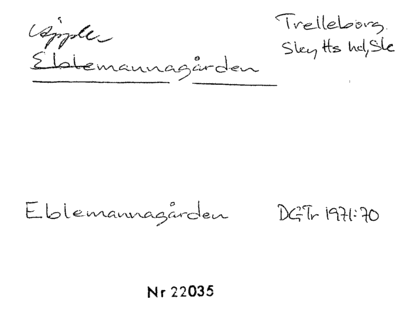 Äpple
Eblemannagården
Trelleborg
Sky Hs hd, Sk
Eblemannagården DGTr 1971:70
Nr 22035